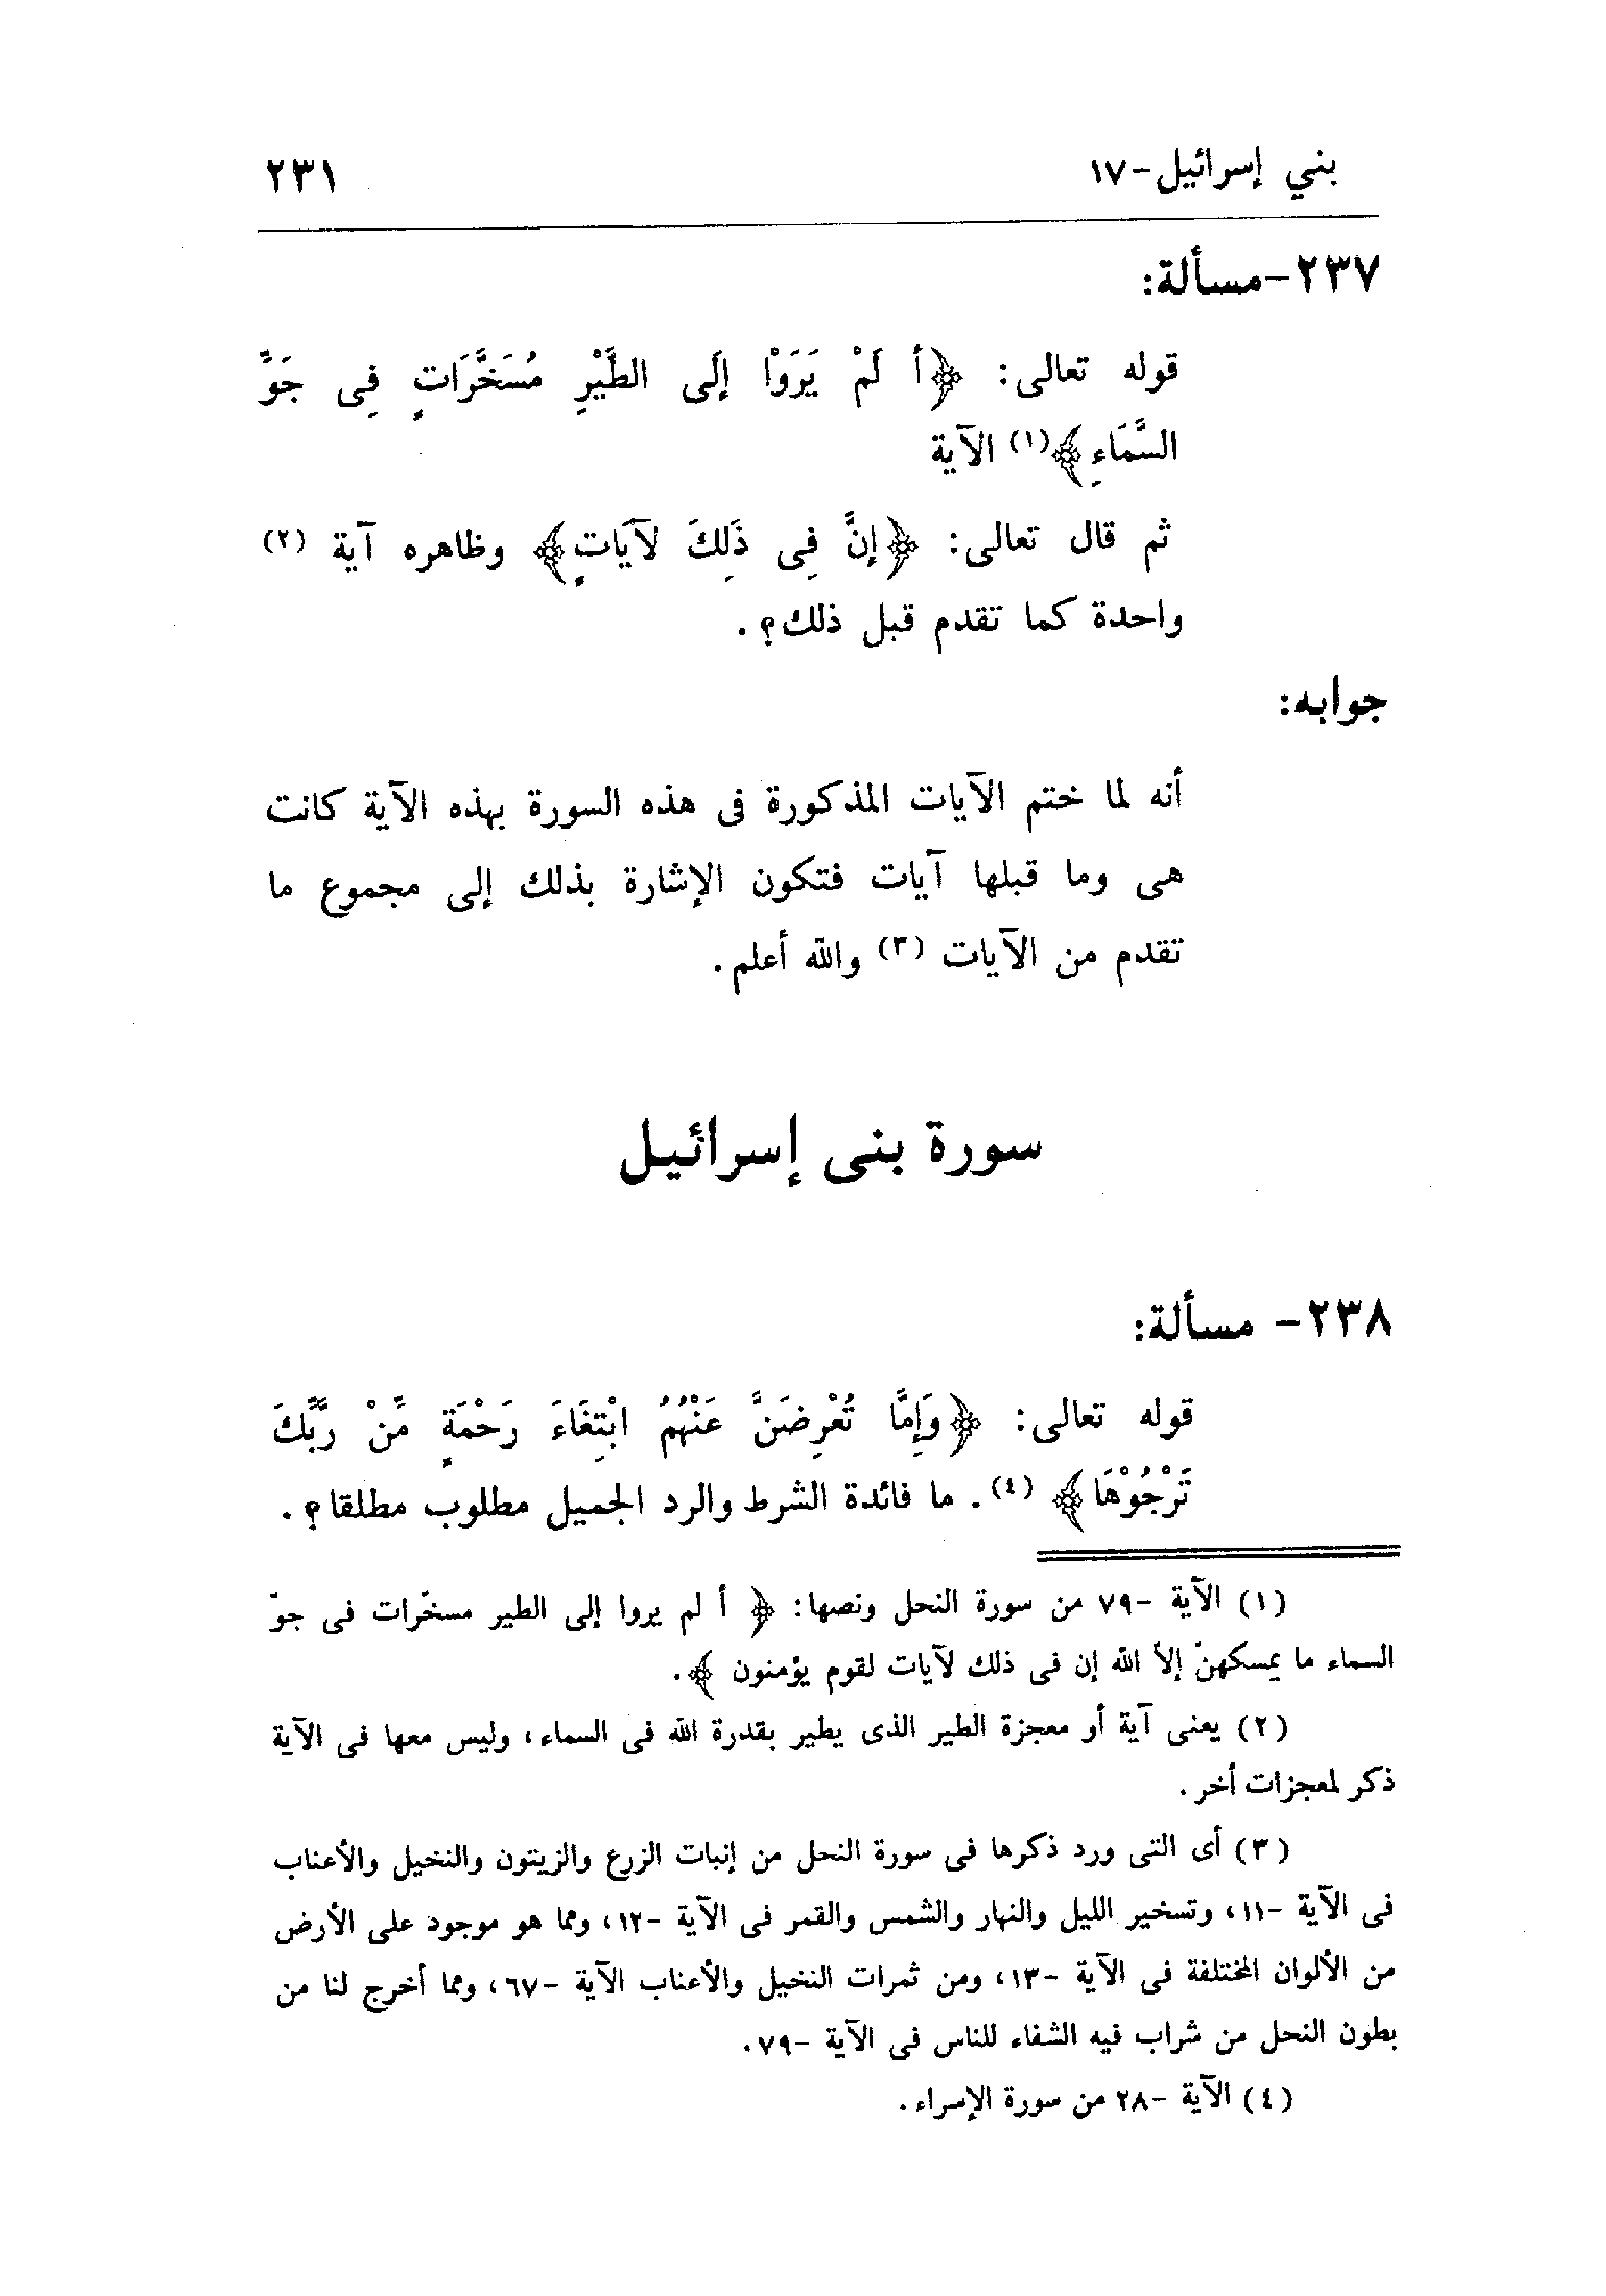 بني إسرائيل-١٧ ٢٣١
٢٣٧-مسألة:
قوله تعالى: ﴿أ لَمْ يَرَوْا إِلَى الطَّيْرِ مُسَخَّرَاتٍ فِى جَوِّ
السَّمَاءِ﴾(١) الآية
ثم قال تعالى: ﴿إِنَّ فِى ذَلِكَ لآيَاتٍ﴾ وظاهره آية (٢)
واحدة كما تقدم قبل ذلك؟.
جوابه:
أنه لما ختم الآيات المذكورة فى هذه السورة بهذه الآية كانت
هى وما قبلها آيات فتكون الإشارة بذلك إلى مجموع ما
تقدم من الآيات (٣) والله أعلم.
سورة بنى إسرائيل
٢٣٨- مسألة:
قوله تعالى: ﴿وَإِمَّا تُعْرِضَنَّ عَنْهُمُ ابْتِغَاءَ رَحْمَةٍ مِّنْ رَّبِّكَ
تَرْجُوْهَا﴾ (٤). ما فائدة الشرط والرد الجميل مطلوب مطلقا؟.
(١) الآية -٧٩ من سورة النحل ونصها: ﴿ أ لم يروا إلى الطير مسخّرات فى جوّ
السماء ما يمسكهنّ إلاّ الله إن فى ذلك لآيات لقوم يؤمنون ﴾.
(٢) يعنى آية أو معجزة الطير الذى يطير بقدرة الله فى السماء، وليس معها فى الآية
ذكر لمعجزات أخر.
(٣) أى التى ورد ذكرها فى سورة النحل من إنبات الزرع والزيتون والنخيل والأعناب
فى الآية -١١، وتسخير الليل والنهار والشمس والقمر فى الآية -١٢، ومما هو موجود على الأرض
من الألوان المختلفة فى الآية -١٣، ومن ثمرات النخيل والأعناب الآية -٦٧، ومما أخرج لنا من
بطون النحل من شراب فيه الشفاء للناس فى الآية -٧٩.
(٤) الآية -٢٨ من سورة الإسراء.